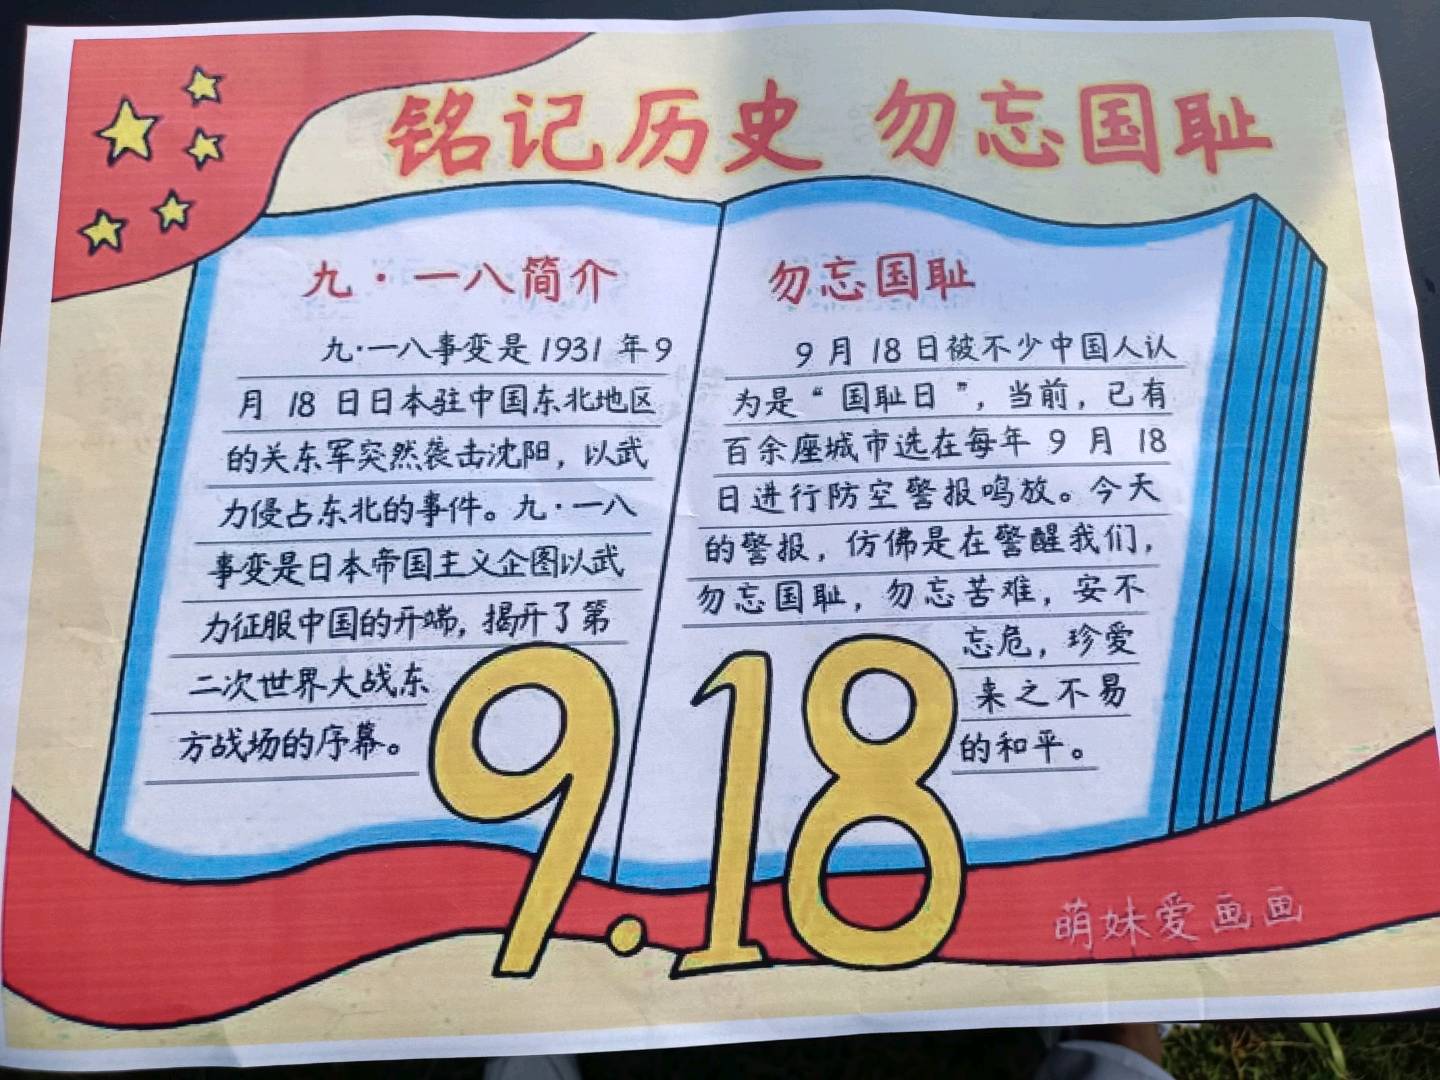 铭记历史 勿忘国耻
九·一八简介
九·一八事变是1931年9
月18日日本驻中国东北地区
的关东军突然袭击沈阳，以武
力侵占东北的事件。九·一八
事变是日本帝国主义企图以武
力征服中国的开端，揭开了第
二次世界大战东
方战场的序幕。
勿忘国耻
9月18日被不少中国人认
为是“国耻日”，当前，已有
百余座城市选在每年9月18
日进行防空警报鸣放。今天
的警报，仿佛是在警醒我们，
勿忘国耻，勿忘苦难，安不
忘危，珍爱
来之不易
的和平。
9.18
萌妹爱画画